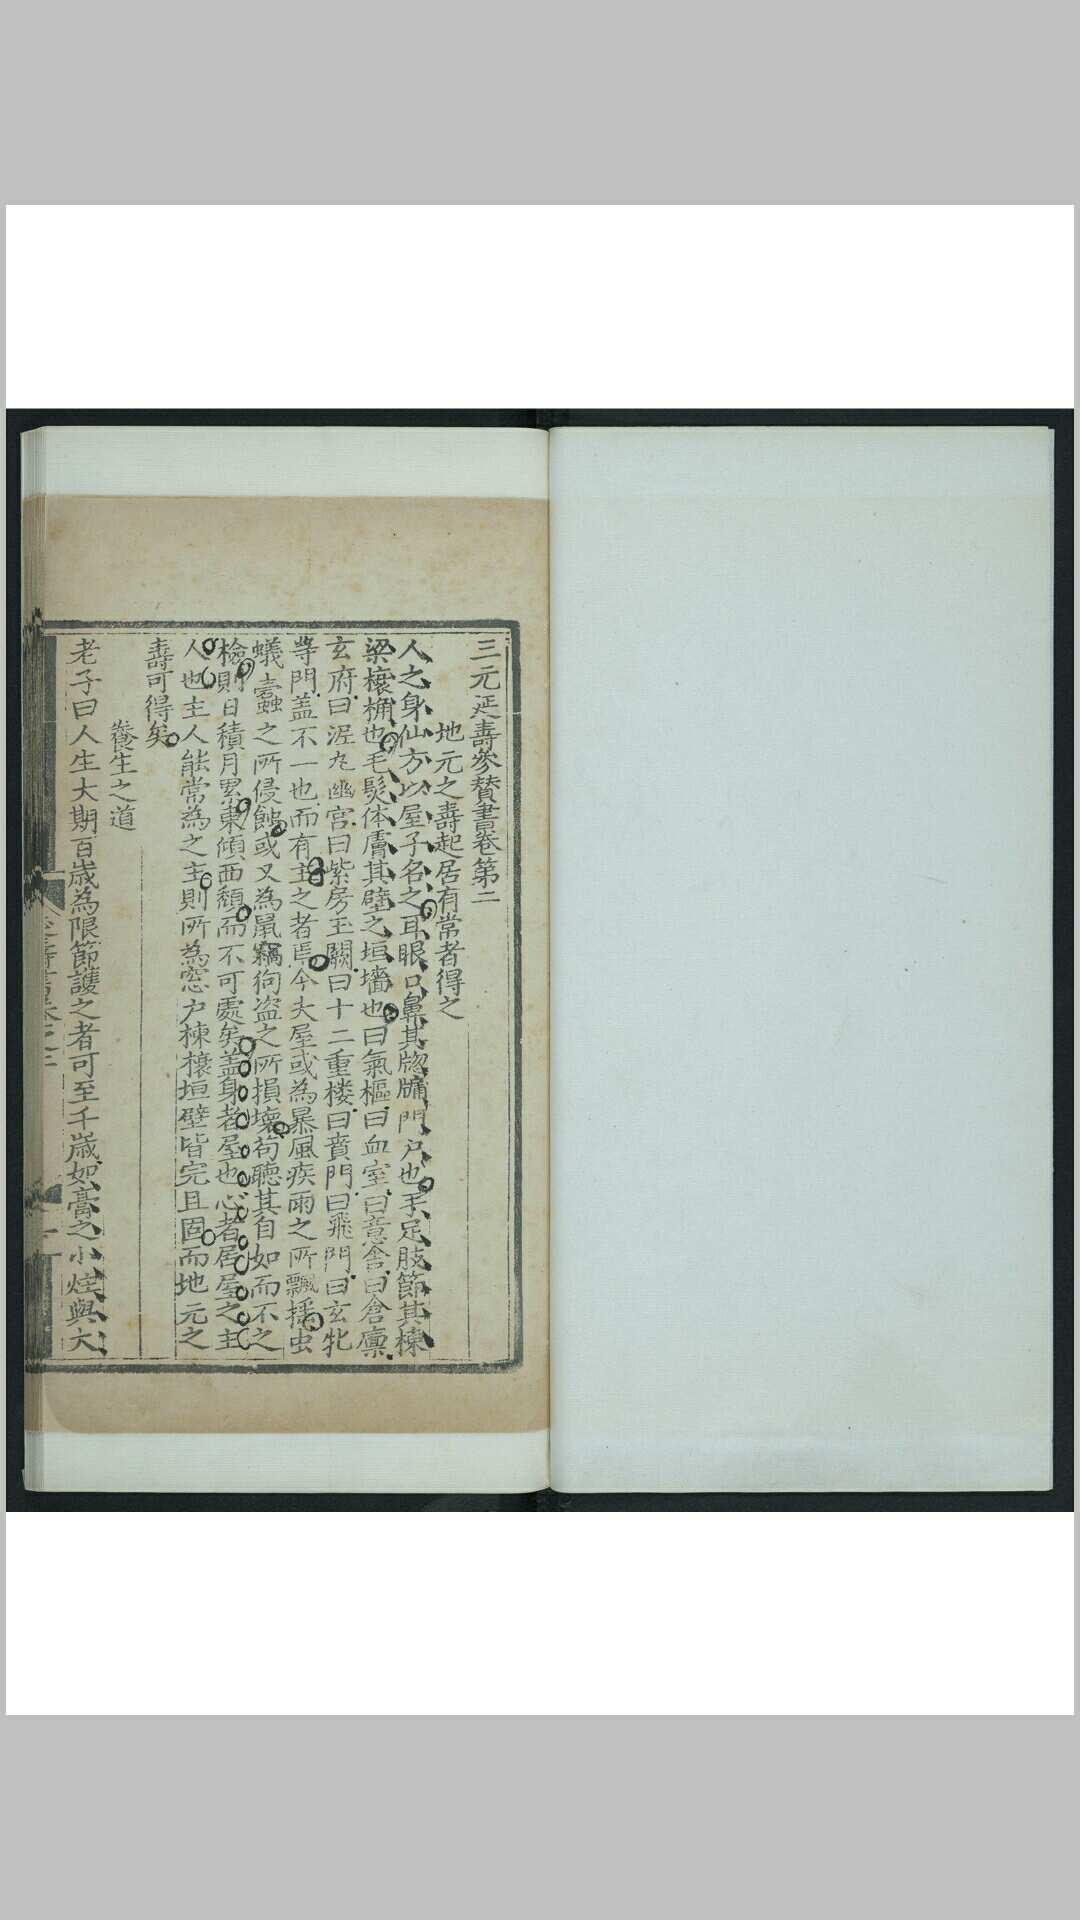 三元延壽參賛書卷第二
地元之壽起居有常者得之
人之身仙方以屋子名之耳眼口鼻其牎牖門户也手足肢節其棟
梁榱桷也毛髮体膚其壁之垣墻也曰氣樞曰血室曰意舍曰倉廪
玄府曰泥丸幽宫曰紫房玉闕曰十二重楼曰賁門曰飛門曰玄牝
等門盖不一也而有主之者焉今夫屋或為暴風疾雨之所飄揺虫
蟻蠧之所侵蝕或又為鼠竊狗盗之所損壞苟聴其自如而不之
檢則日積月累東傾西頽而不可處矣盖身者屋也心者居屋之主
人也主人能常為之主則所為窓户棟榱垣壁皆完且固而地元之
壽可得矣
養生之道
老子曰人生大期百歳為限節護之者可至千歳如膏之小炷與大